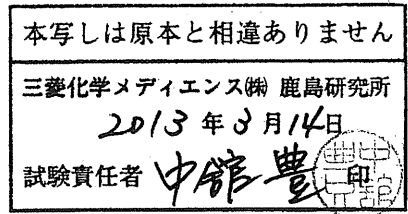 本写しは原本と相違ありません
三菱化学メディエンス㈱ 鹿島研究所
2013年3月14日
試験責任者 中舘 豊 印